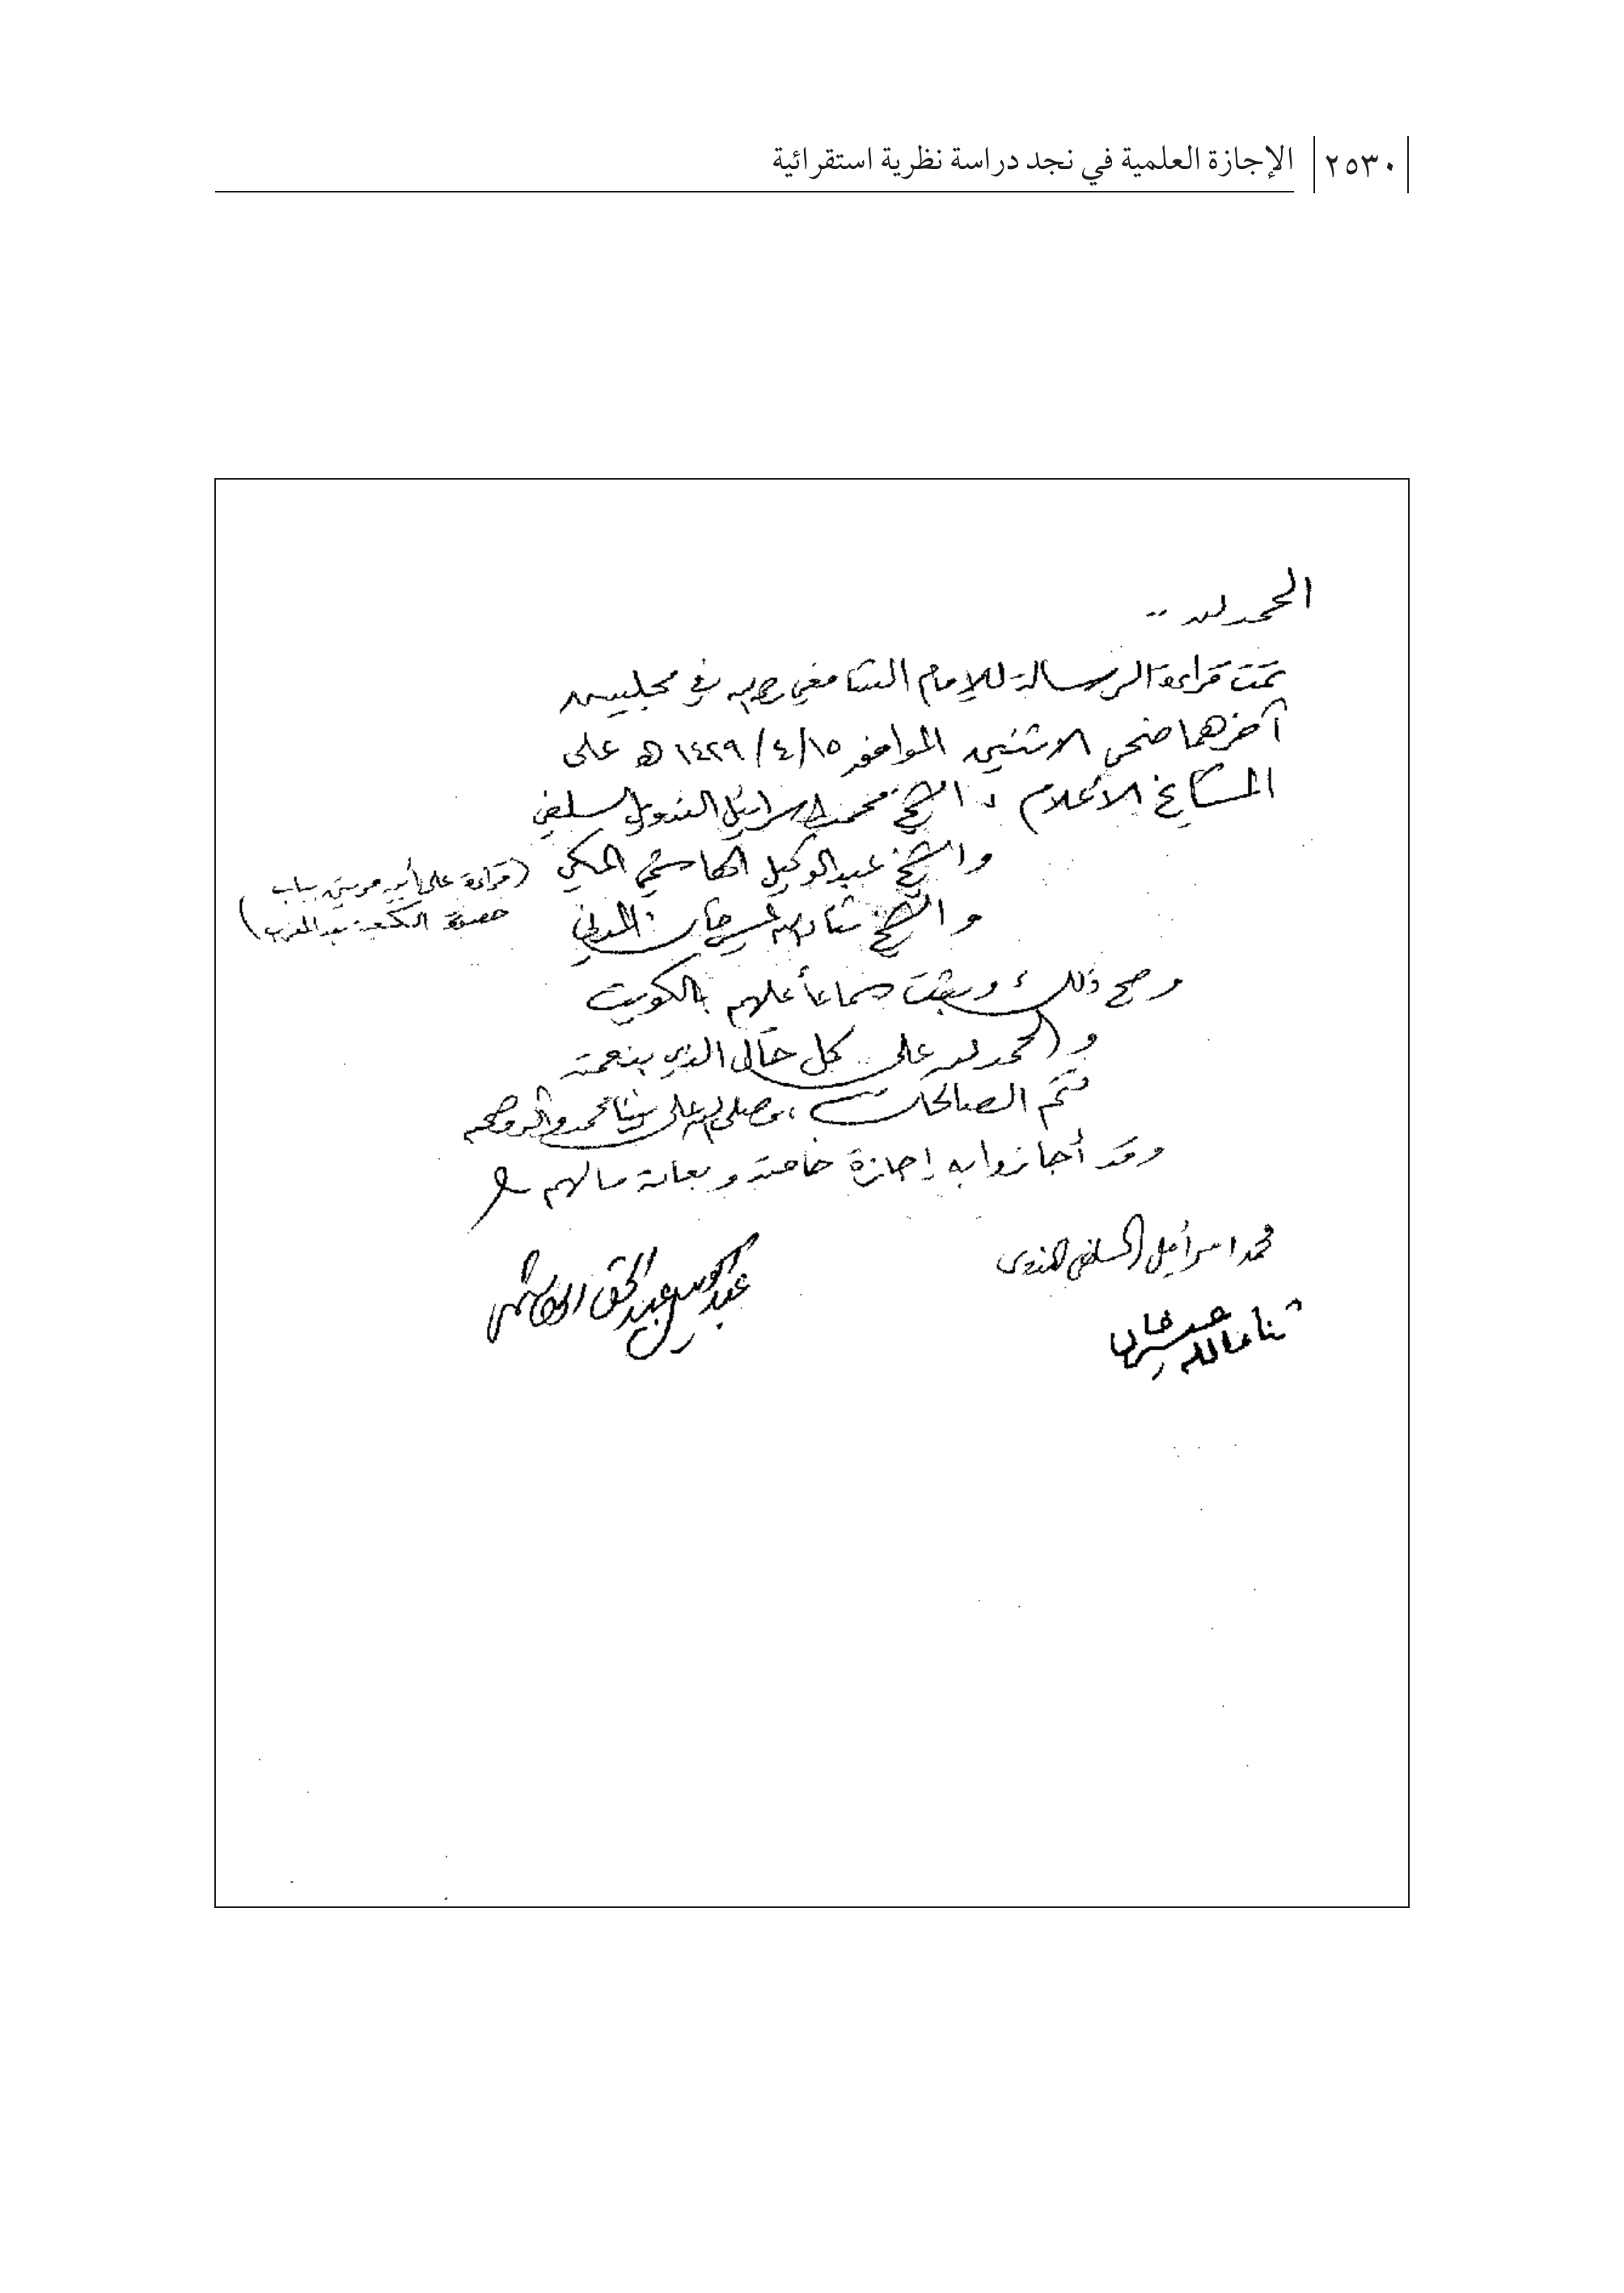 ٢٥٣٠ الإجازة العلمية في نجد دراسة نظرية استقرائية
الحمد لله ..
تمت قراءة الرسالة للإمام الشافعي رحمه الله في مجلسين
آخرهما ضحى الاثنين الموافق ١٥/٤/١٤٢٩ هـ على
المشايخ الأعلام : الشيخ محمد إسرائيل الندوي السلفي
والشيخ عبدالوكيل الهاشمي المكي
(قراءة على أبيه مرتين بباب
الكعبة بعد المغرب)
والشيخ ثناء الله خان المدني
وصح ذلك وثبت سماعاً عليهم بالكويت
والحمد لله على كل حال الذي بنعمته
تتم الصالحات ، وصلى الله على نبينا محمد وآله وصحبه
وقد أجازوا به إجازة خاصة وبعامة مالهم
محمد اسرائيل السلفي الندوى
عبدالوكيل عبدالحق الهاشمي
ثناءالله خان